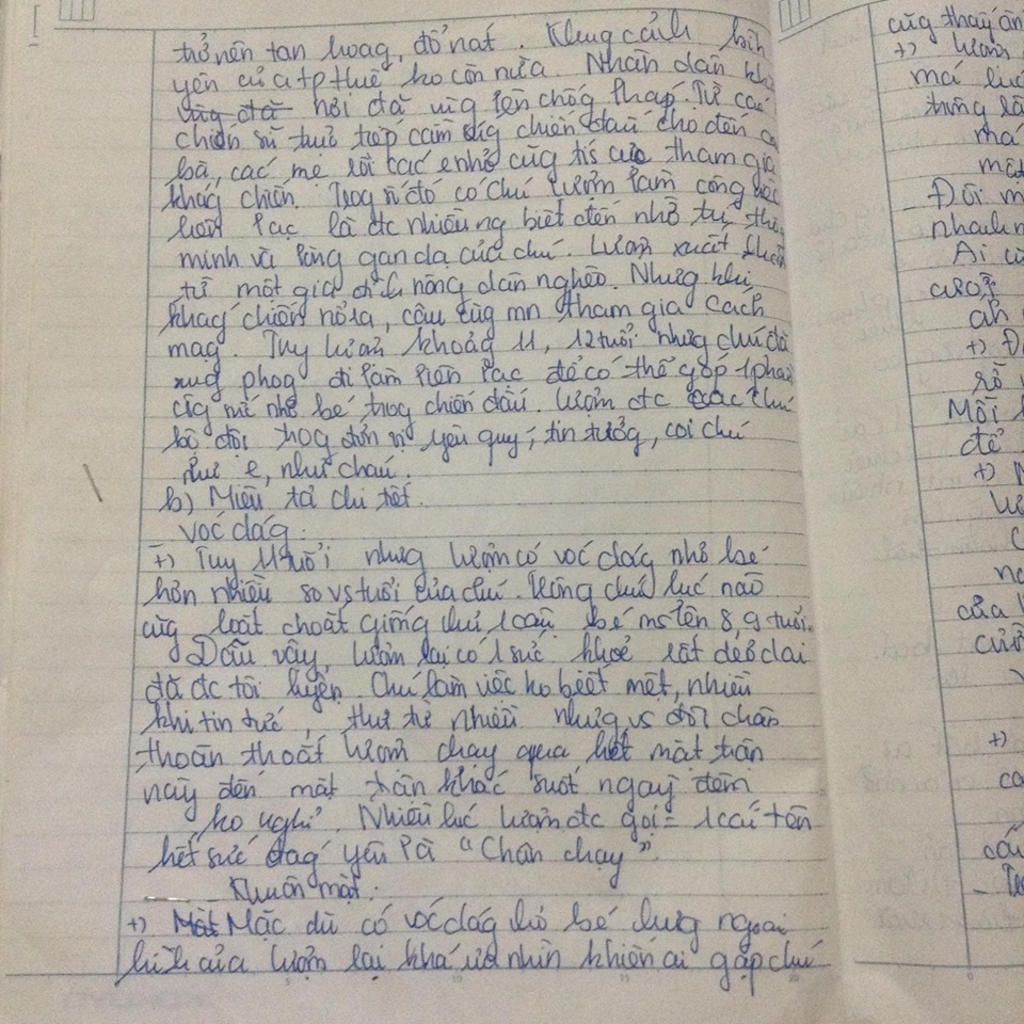 trở nên tan hoag, đổ nát. Khug cảnh bình
yên của tp Huế ko còn nữa. Nhân dân khắp
nơi đã vùg lên chốg Pháp. Từ các
chiến sĩ trực tiếp cầm súg chiến đấu cho đến các
bà, các mẹ rồi các e nhỏ cũg tís cực tham gia
khág chiến. Trog số đó có chú Lượm làm công việc
liên lạc là đc nhiều ng biết đến nhờ tư thông
minh và lòng gan dạ của chú. Lượm xuất thân
từ một gia đình nông dân nghèo. Nhưg khi
khág chiến nổ ra, cậu cùg mn tham gia cách
mạg. Tuy Lượm khoảg 11, 12 tuổi nhưg chú đã
xug phog đi làm liên lạc để có thể góp 1 phần
côg sức nhỏ bé trog chiến đấu. Lượm đc các chú
bộ đội trog đơn vị yêu quý, tin tưởng, coi chú
như e, như cháu.
b) Miêu tả chi tiết.
Vóc dág:
+) Tuy 11 tuổi nhưg Lượm có vóc dág nhỏ bé
hơn nhiều so vs tuổi của chú. Trông chú lúc nào
cũg loắt choắt giống như 1 cậu bé ms lên 8, 9 tuổi.
Dẫu vậy, Lượm lại có 1 sức khoẻ rất dẻo dai
đã đc tôi luyện. Chú làm việc ko biết mệt, nhiều
khi tin tức, thư từ nhiều nhưg vs đôi chân
thoăn thoắt Lượm chạy qua hết mặt trận
này đến mặt trận khác suốt ngày đêm
ko nghỉ. Nhiều lúc Lượm đc gọi = 1 cái tên
hết sức đág yêu là "Chân chạy".
Khuôn mặt:
+) Mặc dù có vóc dág nhỏ bé nhưg ngoại
hình của Lượm lại khá ưa nhìn khiến ai gặp chú
cũg thấy ấn
+) Lượm
má lúc
trứng
má
một
- Đôi m
nhanh n
Ai cũ
cười
ấn
+) Đ
rõ
Mỗi
để
+)
của
+)